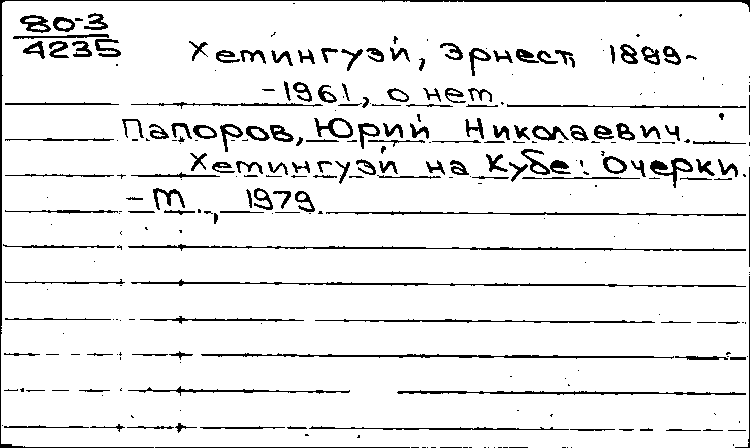 80-3
4235
Хемингуэй, Эрнест 1899-
-1961, о нем.
Папоров, Юрий Николаевич.
Хемингуэй на Кубе: Очерки.
- М., 1979